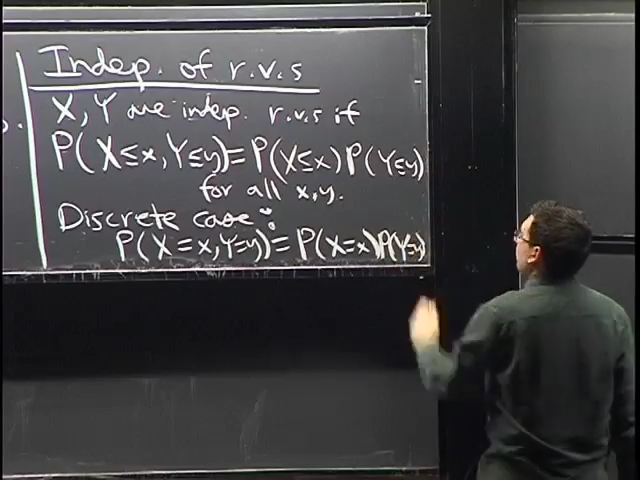 Indep. of r.v.s
X, Y are indep. r.v.s if
P(X≤x, Y≤y) = P(X≤x) P(Y≤y)
for all x, y.
Discrete case:
P(X=x, Y=y) = P(X=x)P(Y=y)